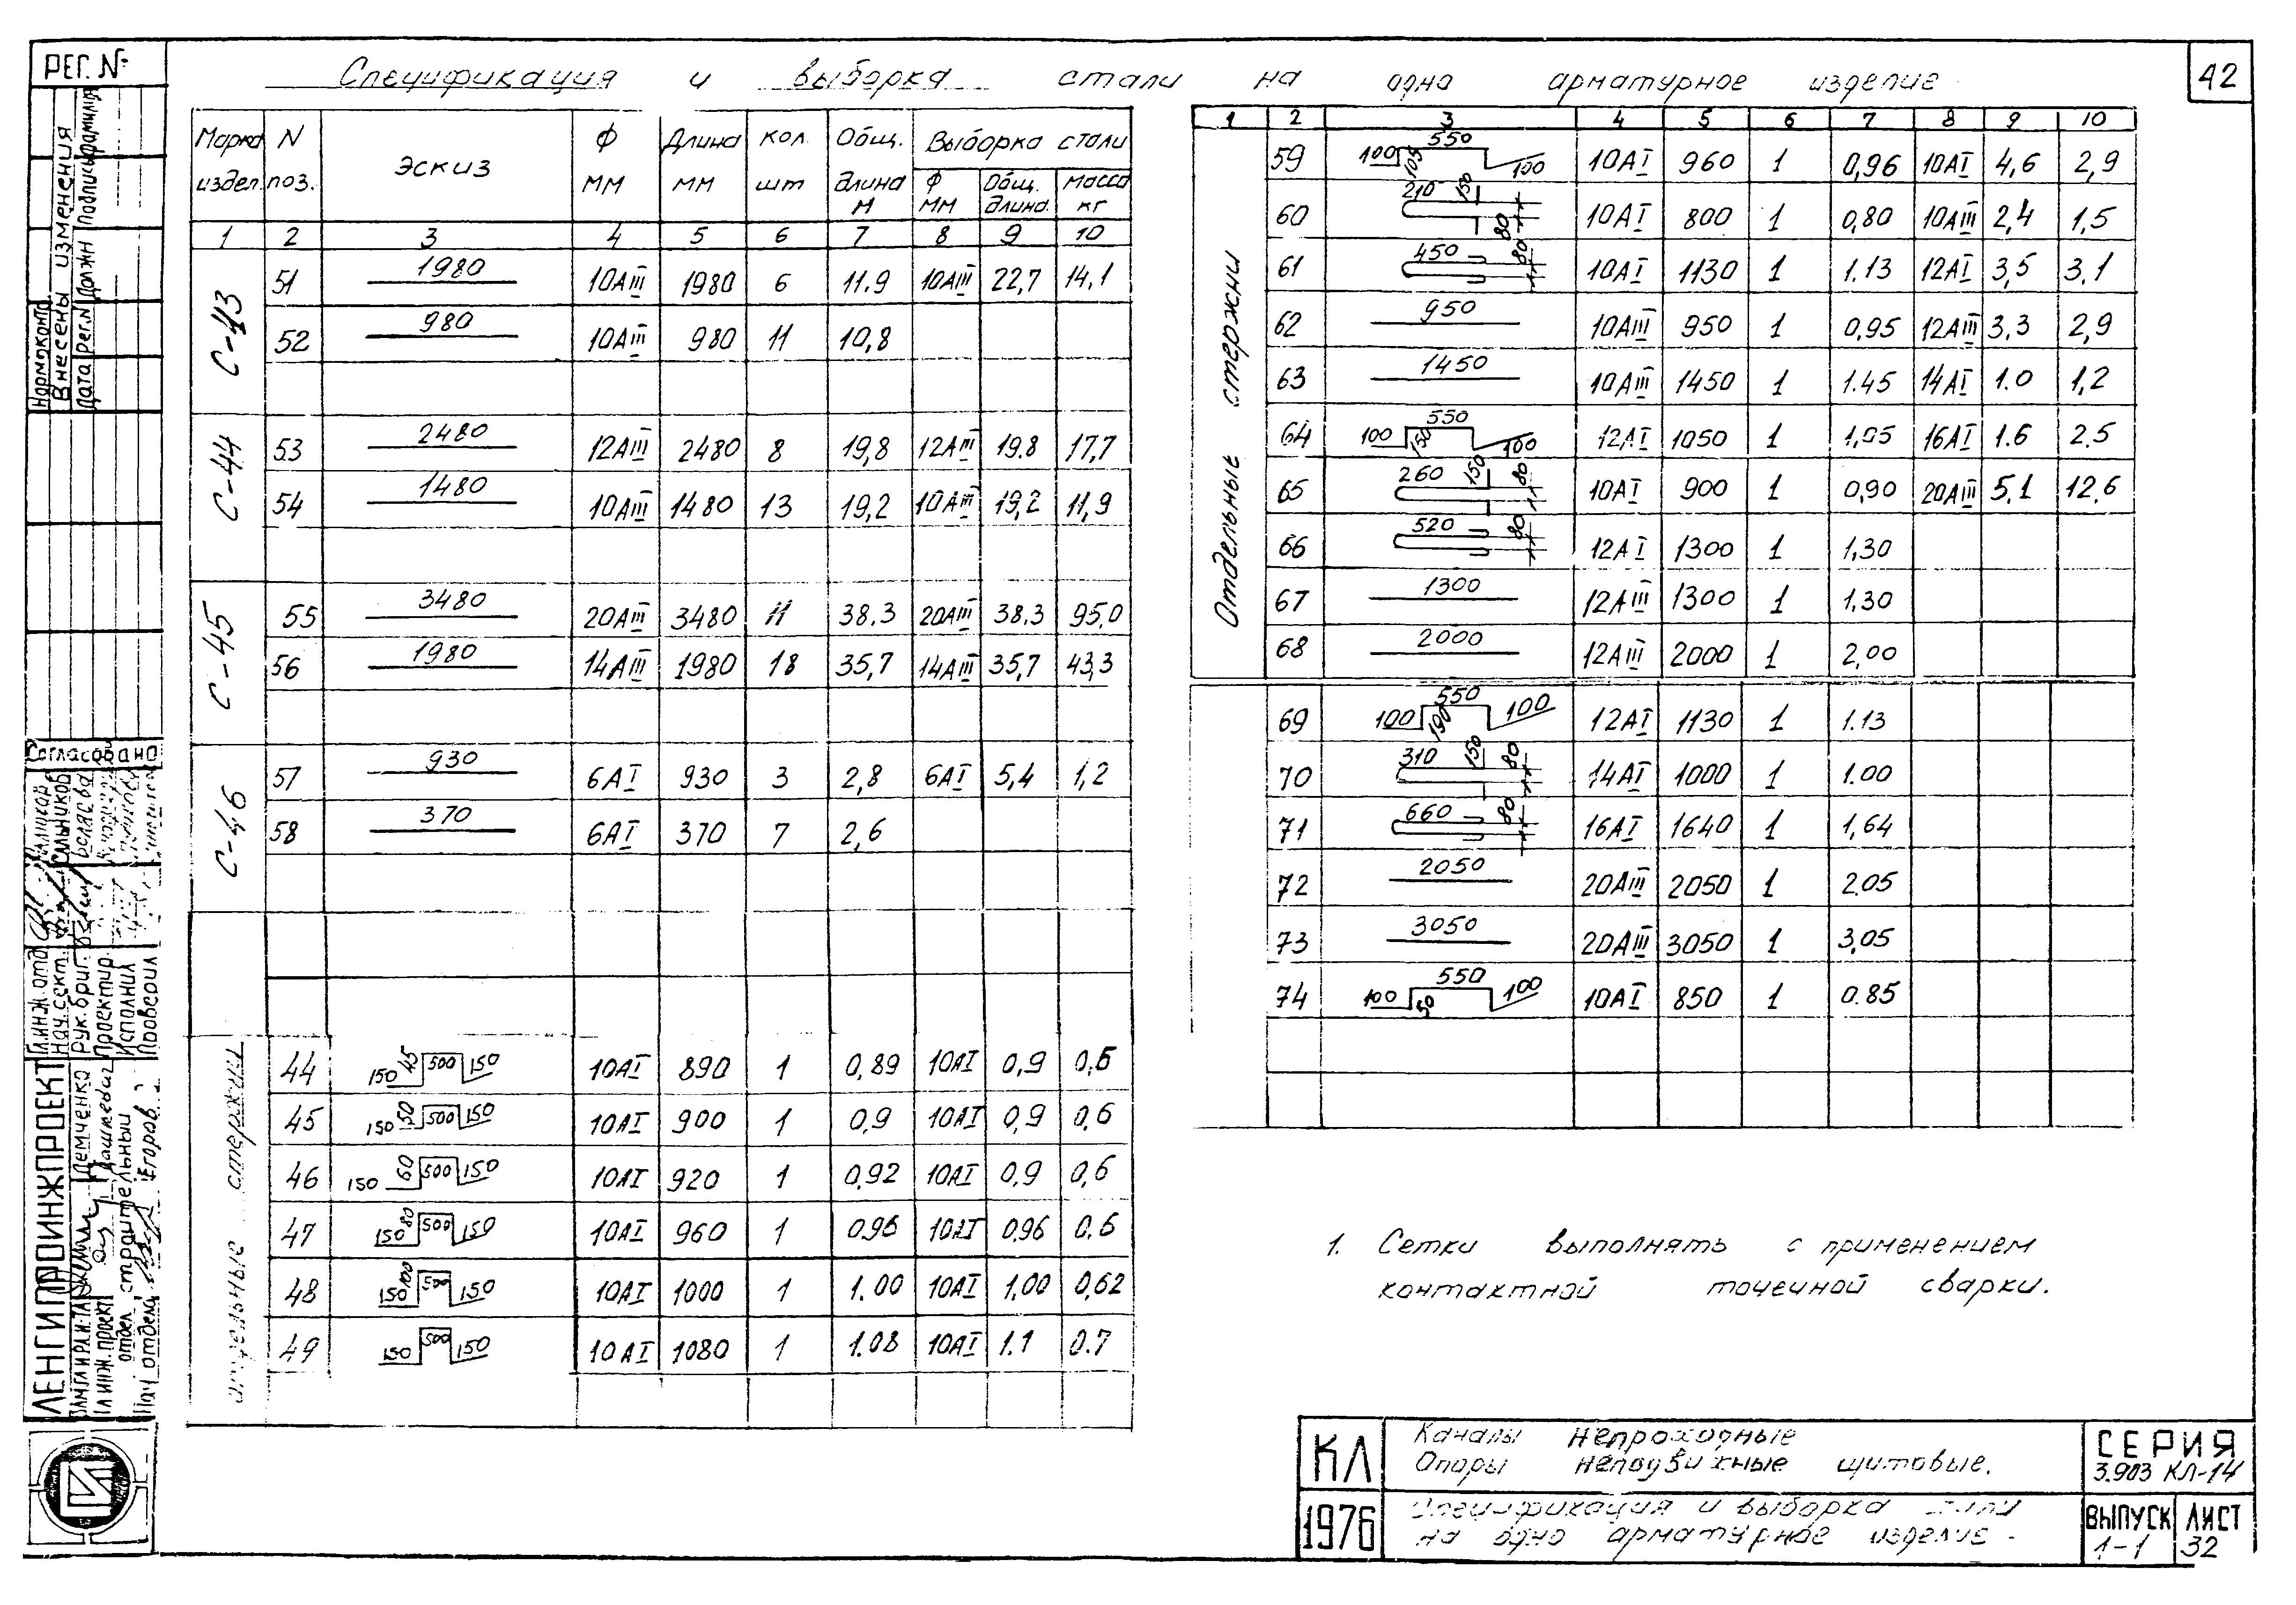 РЕГ. №
42
Спецификация и выборка стали на одно арматурное изделие
Марка издел. | N поз. | Эскиз | Ф мм | Длина мм | Кол. шт | Общ. длина м | Выборка стали
Ф мм | Общ. длина. | Масса кг
1 | 2 | 3 | 4 | 5 | 6 | 7 | 8 | 9 | 10
С-43
51 | 1980 | 10АIII | 1980 | 6 | 11.9 | 10АIII | 22,7 | 14,1
52 | 980 | 10АIII | 980 | 11 | 10,8
С-44
53 | 2480 | 12АIII | 2480 | 8 | 19,8 | 12АIII | 19.8 | 17,7
54 | 1480 | 10АIII | 1480 | 13 | 19,2 | 10АIII | 19,2 | 11,9
С-45
55 | 3480 | 20АIII | 3480 | 11 | 38.3 | 20АIII | 38.3 | 95,0
56 | 1980 | 14АIII | 1980 | 18 | 35,7 | 14АIII | 35,7 | 43,3
С-46
57 | 930 | 6АI | 930 | 3 | 2,8 | 6АI | 5,4 | 1,2
58 | 370 | 6АI | 370 | 7 | 2,6
отдельные стержни
44 | 150 45 500 150 | 10АI | 890 | 1 | 0,89 | 10АI | 0,9 | 0,6
45 | 150 50 500 150 | 10АI | 900 | 1 | 0,9 | 10АI | 0,9 | 0,6
46 | 150 60 500 150 | 10АI | 920 | 1 | 0,92 | 10АI | 0,9 | 0,6
47 | 150 80 500 150 | 10АI | 960 | 1 | 0.96 | 10АI | 0.96 | 0.6
48 | 150 100 500 150 | 10АI | 1000 | 1 | 1.00 | 10АI | 1,00 | 0,62
49 | 150 500 150 | 10АI | 1080 | 1 | 1.08 | 10АI | 1.1 | 0.7
1 | 2 | 3 | 4 | 5 | 6 | 7 | 8 | 9 | 10
Отдельные стержни
59 | 100 105 550 100 | 10АI | 960 | 1 | 0,96 | 10АI | 4,6 | 2,9
60 | 210 150 80 | 10АI | 800 | 1 | 0,80 | 10АIII | 2,4 | 1,5
61 | 450 80 | 10АI | 1130 | 1 | 1.13 | 12АI | 3,5 | 3,1
62 | 950 | 10АIII | 950 | 1 | 0,95 | 12АIII | 3,3 | 2,9
63 | 1450 | 10АIII | 1450 | 1 | 1.45 | 14АI | 1.0 | 1,2
64 | 100 150 550 100 | 12АI | 1050 | 1 | 1,05 | 16АI | 1.6 | 2.5
65 | 260 150 80 | 10АI | 900 | 1 | 0,90 | 20АIII | 5,1 | 12,6
66 | 520 80 | 12АI | 1300 | 1 | 1,30
67 | 1300 | 12АIII | 1300 | 1 | 1.30
68 | 2000 | 12АIII | 2000 | 1 | 2,00
69 | 100 190 550 100 | 12АI | 1130 | 1 | 1.13
70 | 310 150 80 | 14АI | 1000 | 1 | 1.00
71 | 660 80 | 16АI | 1640 | 1 | 1,64
72 | 2050 | 20АIII | 2050 | 1 | 2.05
73 | 3050 | 20АIII | 3050 | 1 | 3,05
74 | 100 50 550 100 | 10АI | 850 | 1 | 0.85
1. Сетки выполнять с применением
контактной точечной сварки.
КЛ
1976
Каналы непроходные
Опоры неподвижные щитовые.
Спецификация и выборка стали
на одно арматурное изделие
СЕРИЯ
3.903 КЛ-14
ВЫПУСК
1-1
ЛИСТ
32
Нормоконтр.
Внесены изменения
Дата Рег.N Должн Подпись Фамилия
Согласовано
Гл.инж.отд
Нач.сект.
Рук.бриг.
Проектир.
Исполнил
Проверил
ЛЕНГИПРОИНЖПРОЕКТ
Гл.инж.проект
отдел строительный
Нач.отдела Егоров
Демченко